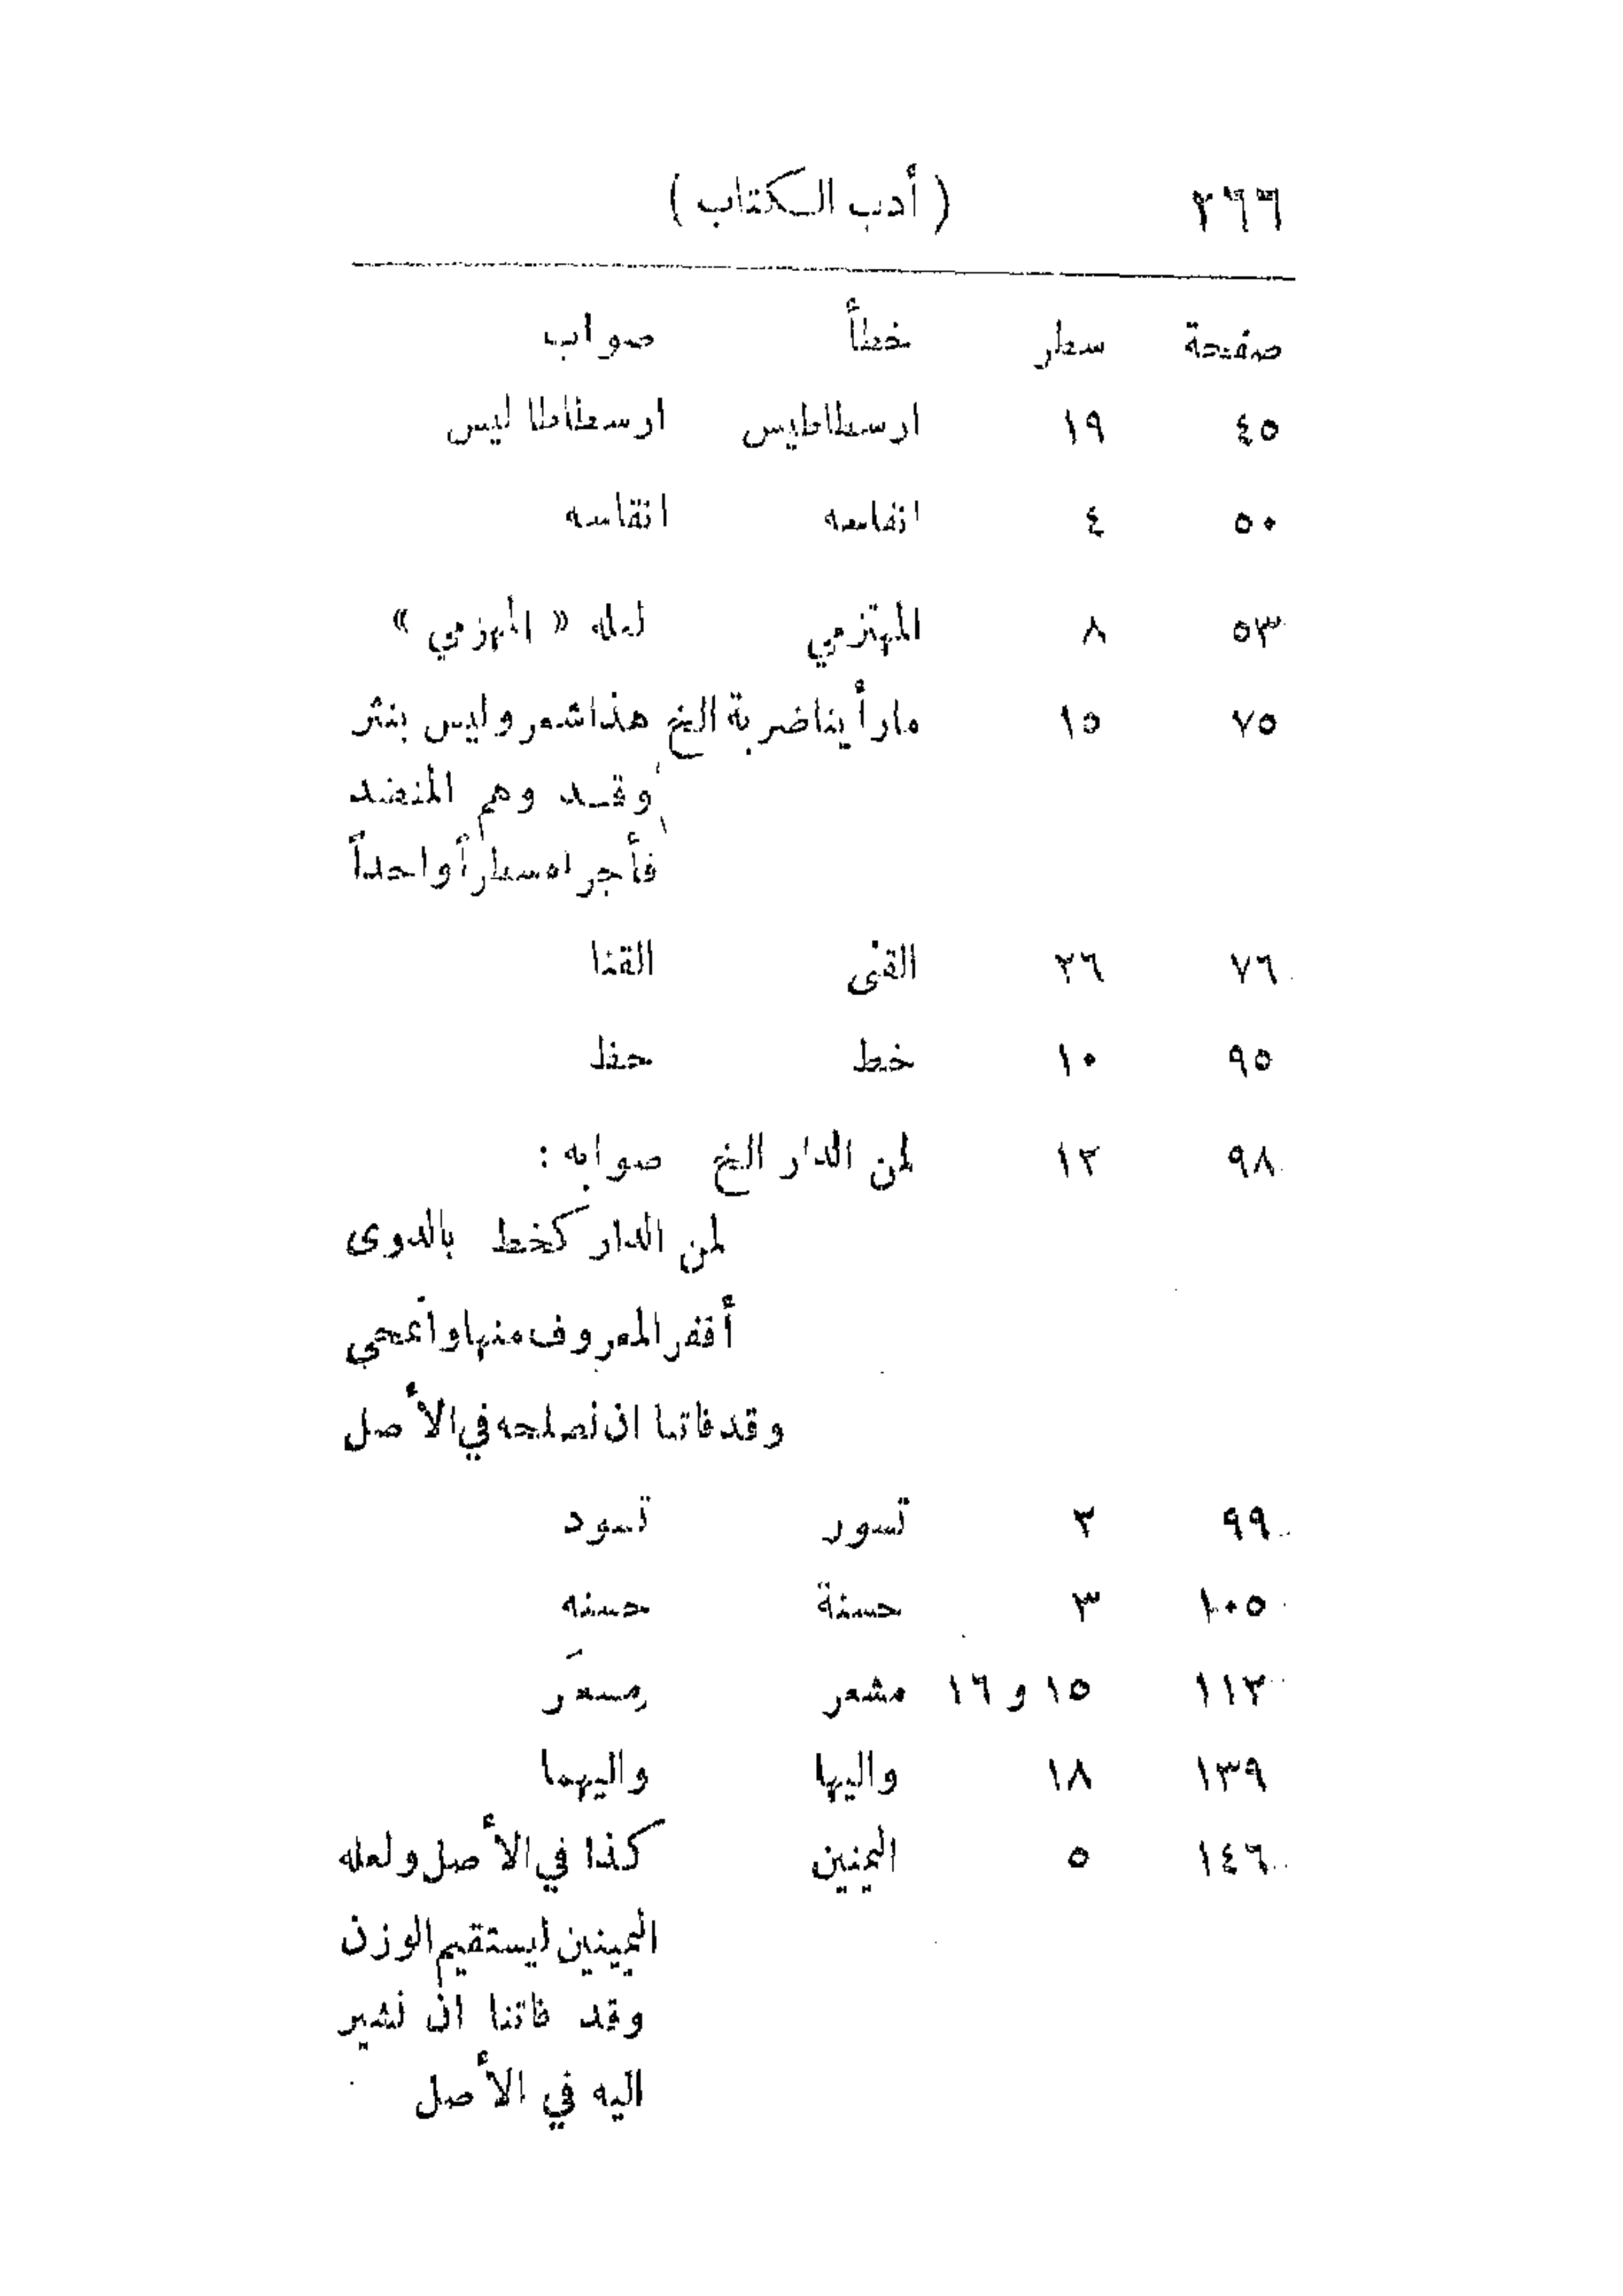 ٢٦٦ ( أدب الكتاب )
صفحة سطر خطأ صواب
٤٥ ١٩ ارسطاطيس ارسطاطاليس
٥٠ ٤ انفاسه انقاسه
٥٣ ٨ المهتزمي لعله « المهزمي »
٧٥ ١٥ مارأيناضربة الخ هذاشعر وليس بنثر
وقد وهم المنضد
فأجراه سطراً واحداً
٧٦ ٢٦ القنى القنا
٩٥ ١٠ خط حفظ
٩٨ ١٢ لمن الدار الخ صوابه :
لمن الدار كخط بالدوى
أقفر المعروف منها وامحي
وقد فاتنا ان نصلحه في الأصل
٩٩ ٢ تسور تسود
١٠٥ ٣ حسنة حسنه
١١٢ ١٥ و ١٦ مشعر مِسعَر
١٣٩ ١٨ واليها واليهما
١٤٦ ٥ اليمنين كذا في الأصل ولعله
اليمينين ليستقيم الوزن
وقد فاتنا ان نشير
اليه في الأصل